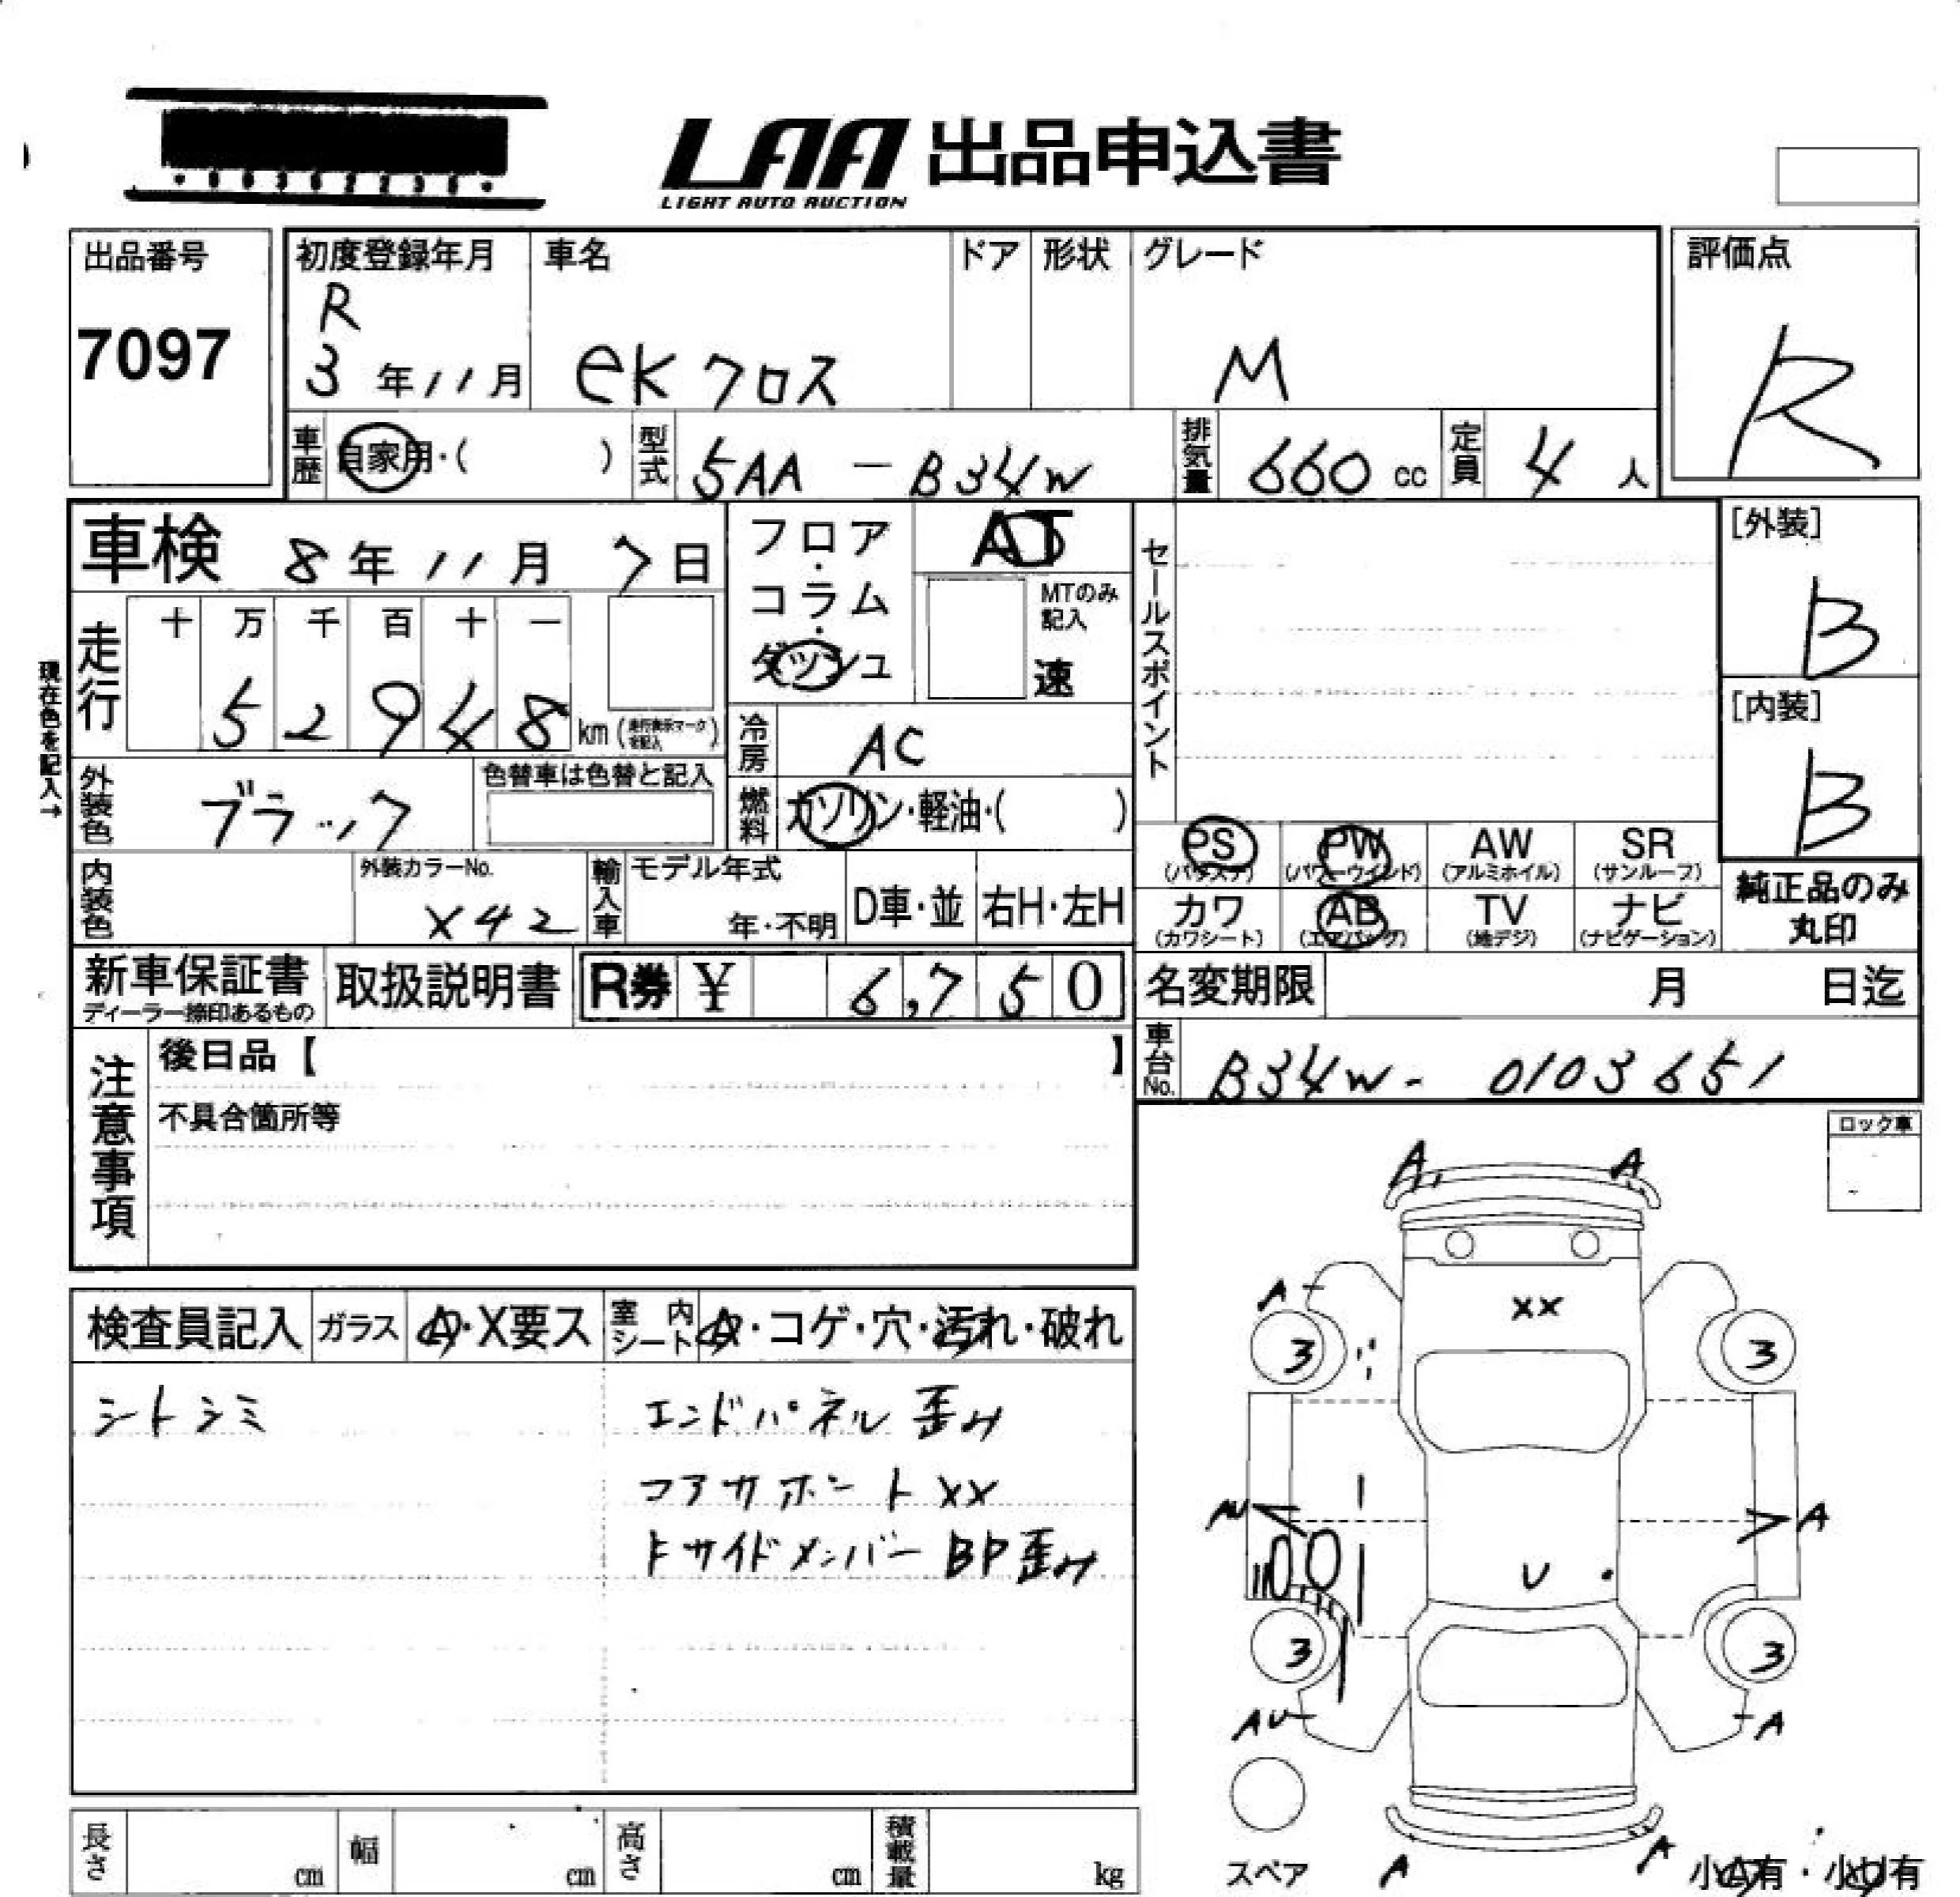 LAA 出品申込書
LIGHT AUTO AUCTION
出品番号
7097
初度登録年月
R
3年11月
車名
eKクロス
ドア
形状
グレード
M
評価点
R
車歴
自家用・( )
型式
5AA - B34W
排気量
660 cc
定員
4 人
車検 8年11月7日
フロア・コラム・ダッシュ
AT
MTのみ記入
速
セールスポイント
[外装]
B
[内装]
B
現在色を記入→
走行
十 万 千 百 十 一
5 2 9 4 8 km
冷房
AC
外装色
ブラック
色替車は色替と記入
燃料
ガソリン・軽油・( )
PS AW SR
PW
(パワステ) (パワーウインド) (アルミホイル) (サンルーフ)
カワ AB TV ナビ
(カワシート) (エアバッグ) (地デジ) (ナビゲーション)
純正品のみ
丸印
内装色
外装カラーNo.
X42
輸入車
モデル年式
年・不明
D車・並
右H・左H
新車保証書
ディーラー捺印あるもの
取扱説明書
R券 ¥ 6,750
名変期限 月 日迄
車台No.
B34W- 0103651
注意事項
後日品【 】
不具合箇所等
ロック車
検査員記入
ガラス
A・X要ス
室内シート
A・コゲ・穴・汚れ・破れ
シートシミ
エンドパネル歪み
コアサポート XX
トサイドメンバー BP歪み
A A
A
XX
3 3
AU A
U
3 3
AU A
スペア
A A
小・有・小・有
長さ cm
幅 cm
高さ cm
積載量 kg